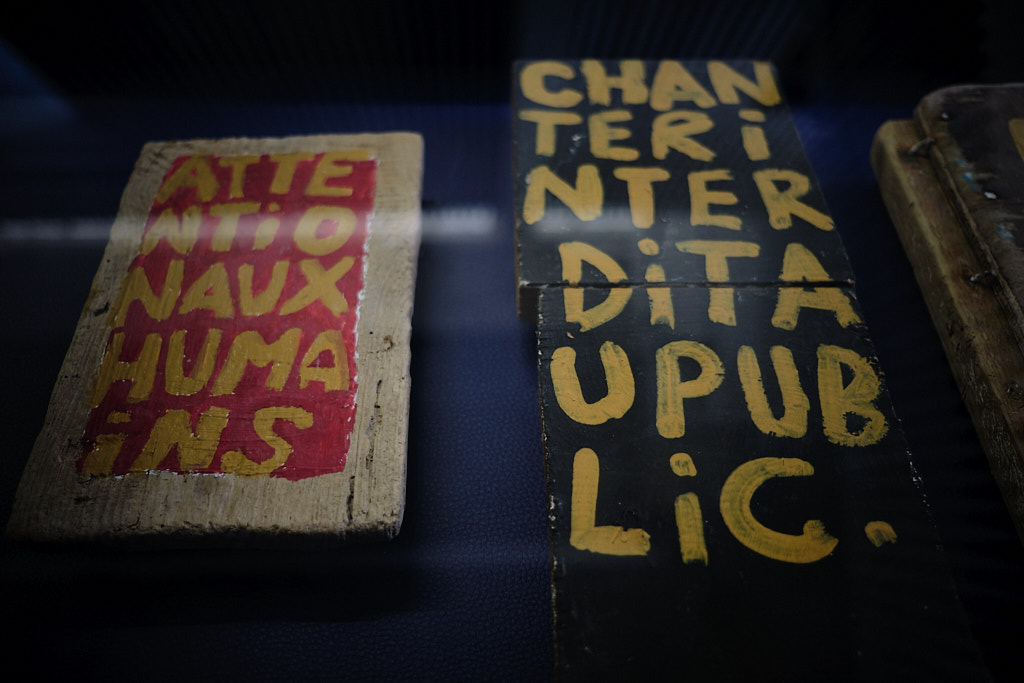 ATTE
NTiO
NAUX
HUMA
iNS
CHAN
TERi
NTER
DiTA
UPUB
LiC.